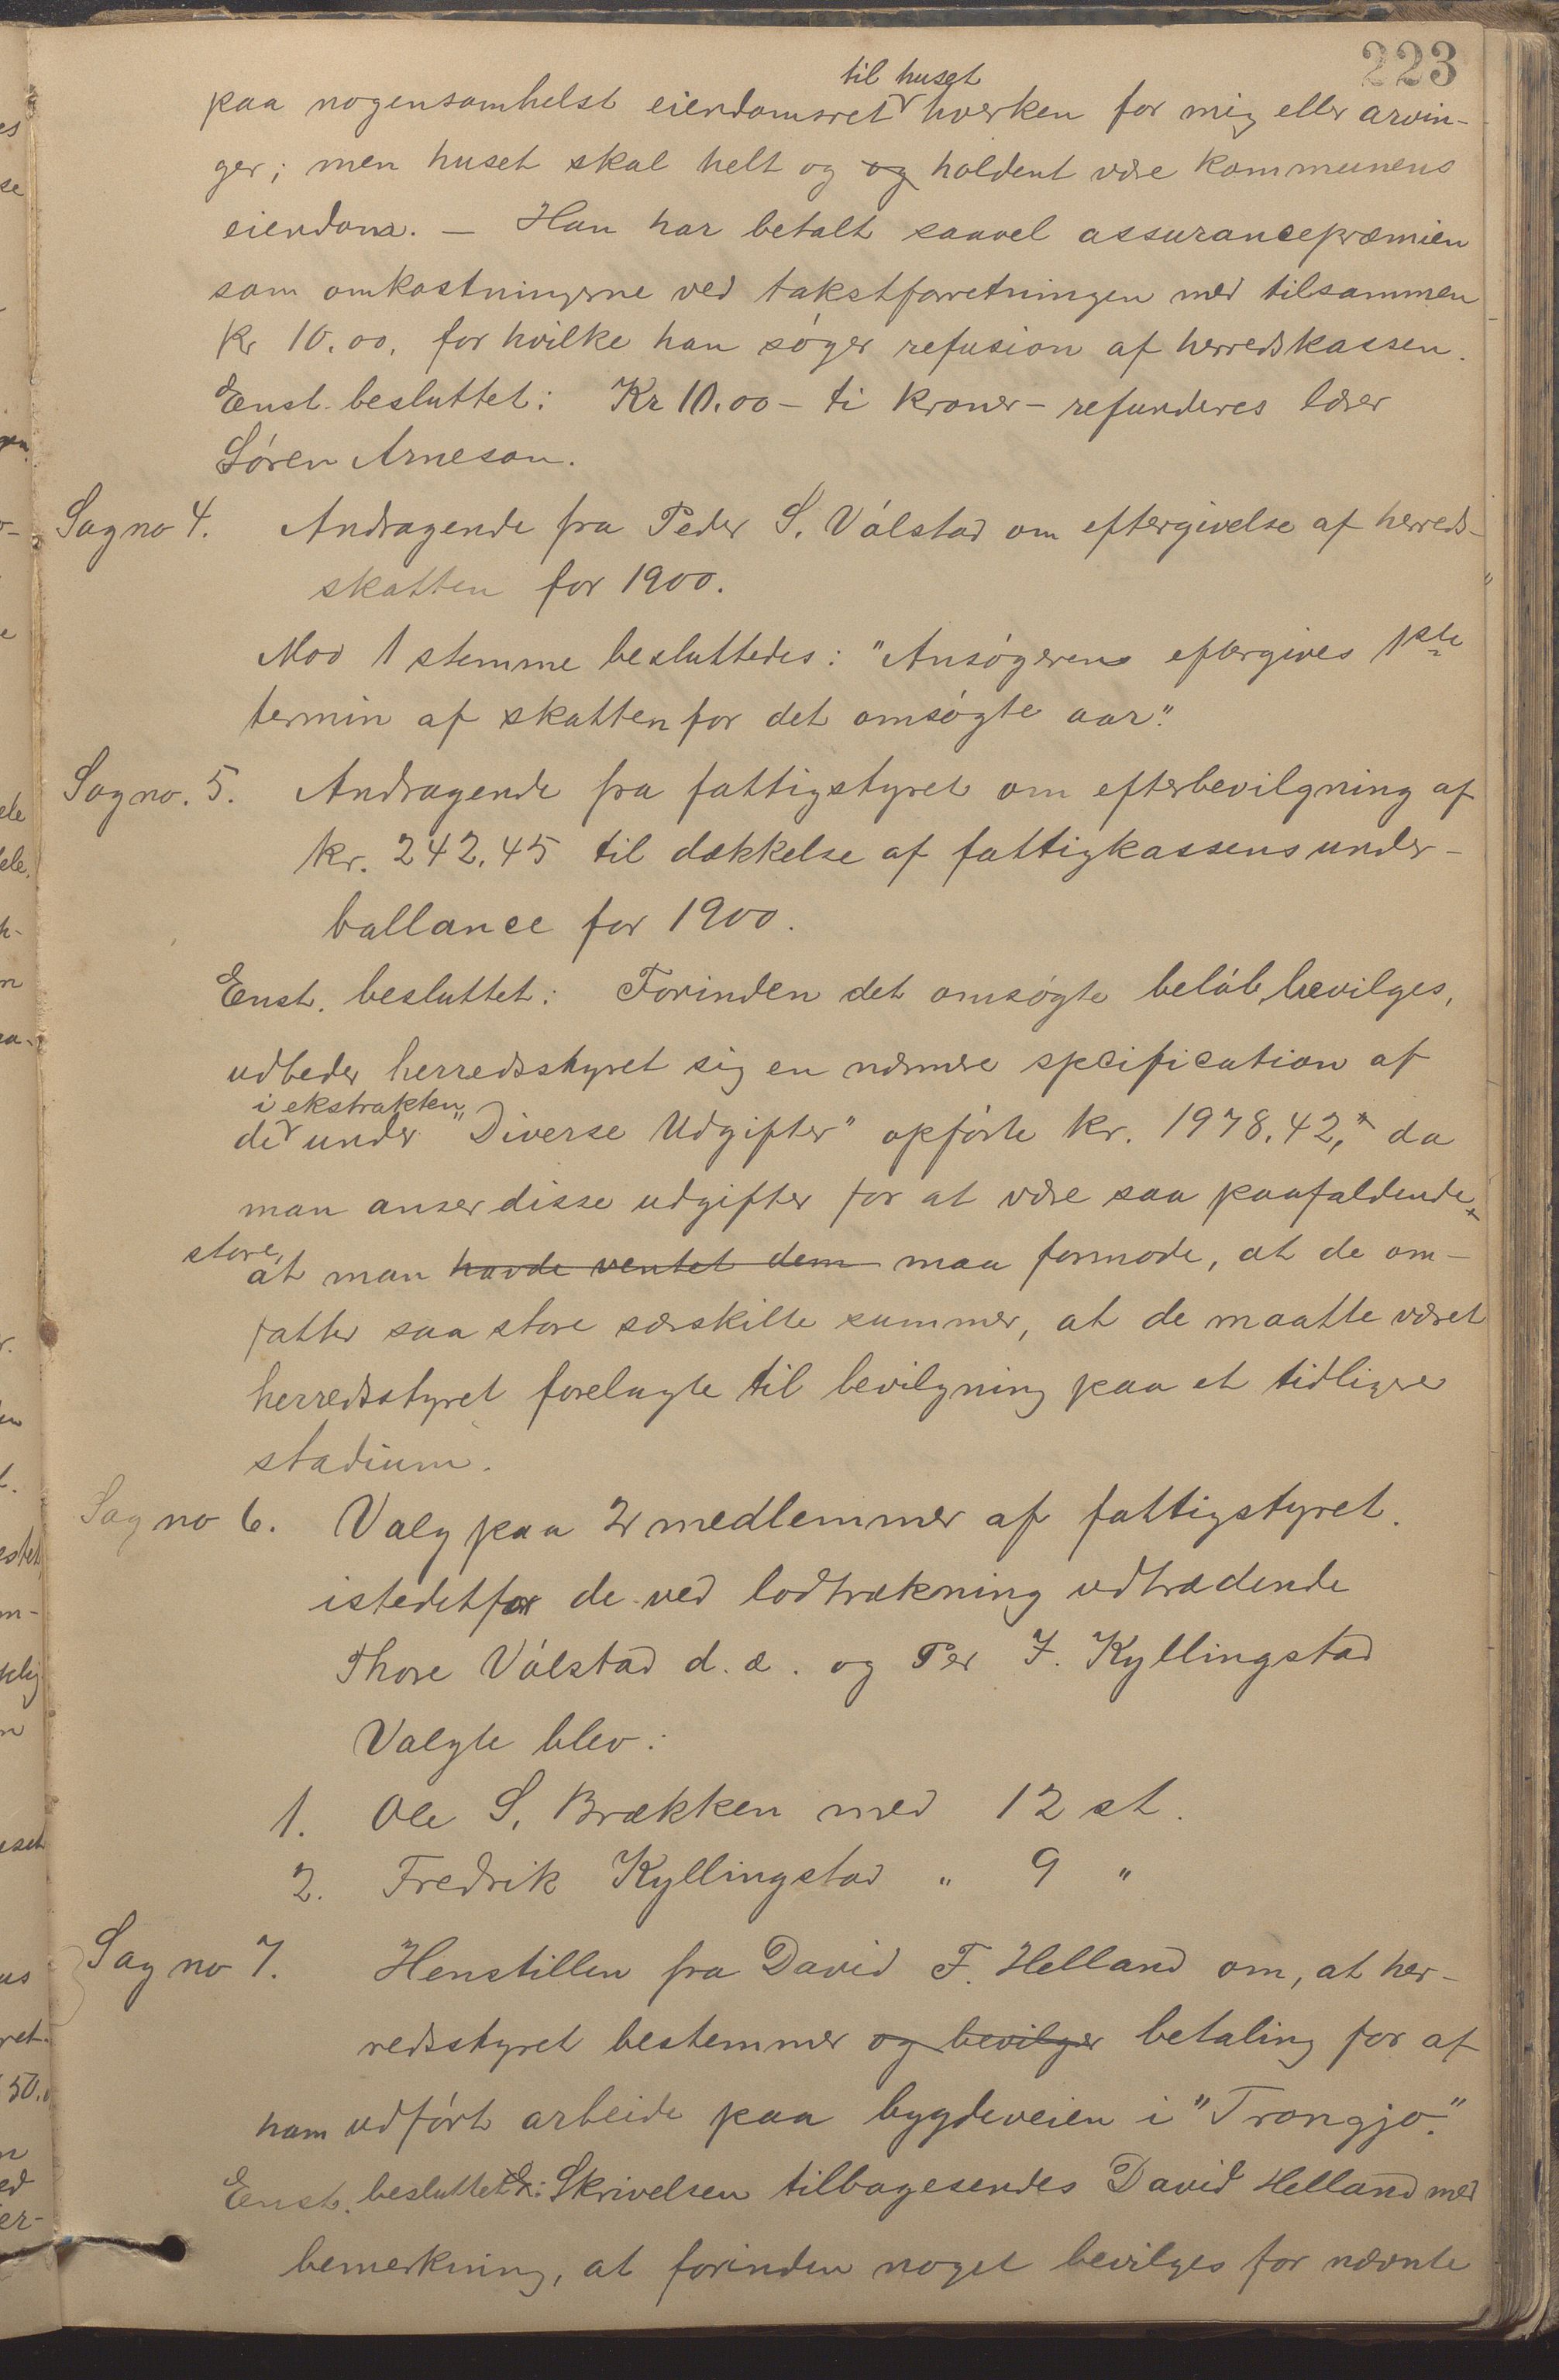 223
paa nogensomhelst eiendomsret til huset hverken for mig eller arvin-
ger; men huset skal helt og og holdent være kommunens
eiendom. — Han har betalt saavel assurancepræmien
som omkostningerne ved takstforretningen med tilsammen
kr 10.00. for hvilke han søger refusion af herredskassen.
Enst. besluttet: Kr 10.00 – ti kroner – refunderes lærer
Søren Arneson.
Sag no 4. Andragende fra Peder S. Vålstad om eftergivelse af herreds-
skatten for 1900.
Mod 1 stemme besluttedes: "Ansøgeren eftergives 1ste
termin af skatten for det omsøgte aar."
Sag no. 5. Andragende fra fattigstyret om efterbevilgning af
kr. 242.45 til dækkelse af fattigkassens under-
ballance for 1900.
Enst. besluttet: Forinden det omsøgte beløb bevilges,
udbeder herredsstyret sig en nærmere spcification af
de i ekstrakten under "Diverse Udgifter" opførte kr. 1978.42, da
man anser disse udgifter for at være saa paafaldende
store, at man havde ventet dem maa formode, at de om-
fatter saa store særskilte summer, at de maatte været
herredsstyret forelagte til bevilgning paa et tidligere
stadium.
Sag no 6. Valg paa 2 medlemmer af fattigstyret.
istedetfor de ved lodtrækning udtrædende
Thore Vålstad d.æ. og Per J. Kyllingstad
Valgte blev:
1. Ole S. Brækken med 12 st.
2. Fredrik Kyllingstad " 9 "
Sag no 7. Henstillen fra David F. Helland om, at her-
redsstyret bestemmer og bevilger betaling for af
ham udført arbeide paa bygdeveien i "Trongjo."
Enst. besluttet: Skrivelsen tilbagesendes David Helland med
bemerkning, at forinden noget bevilges for nævnte